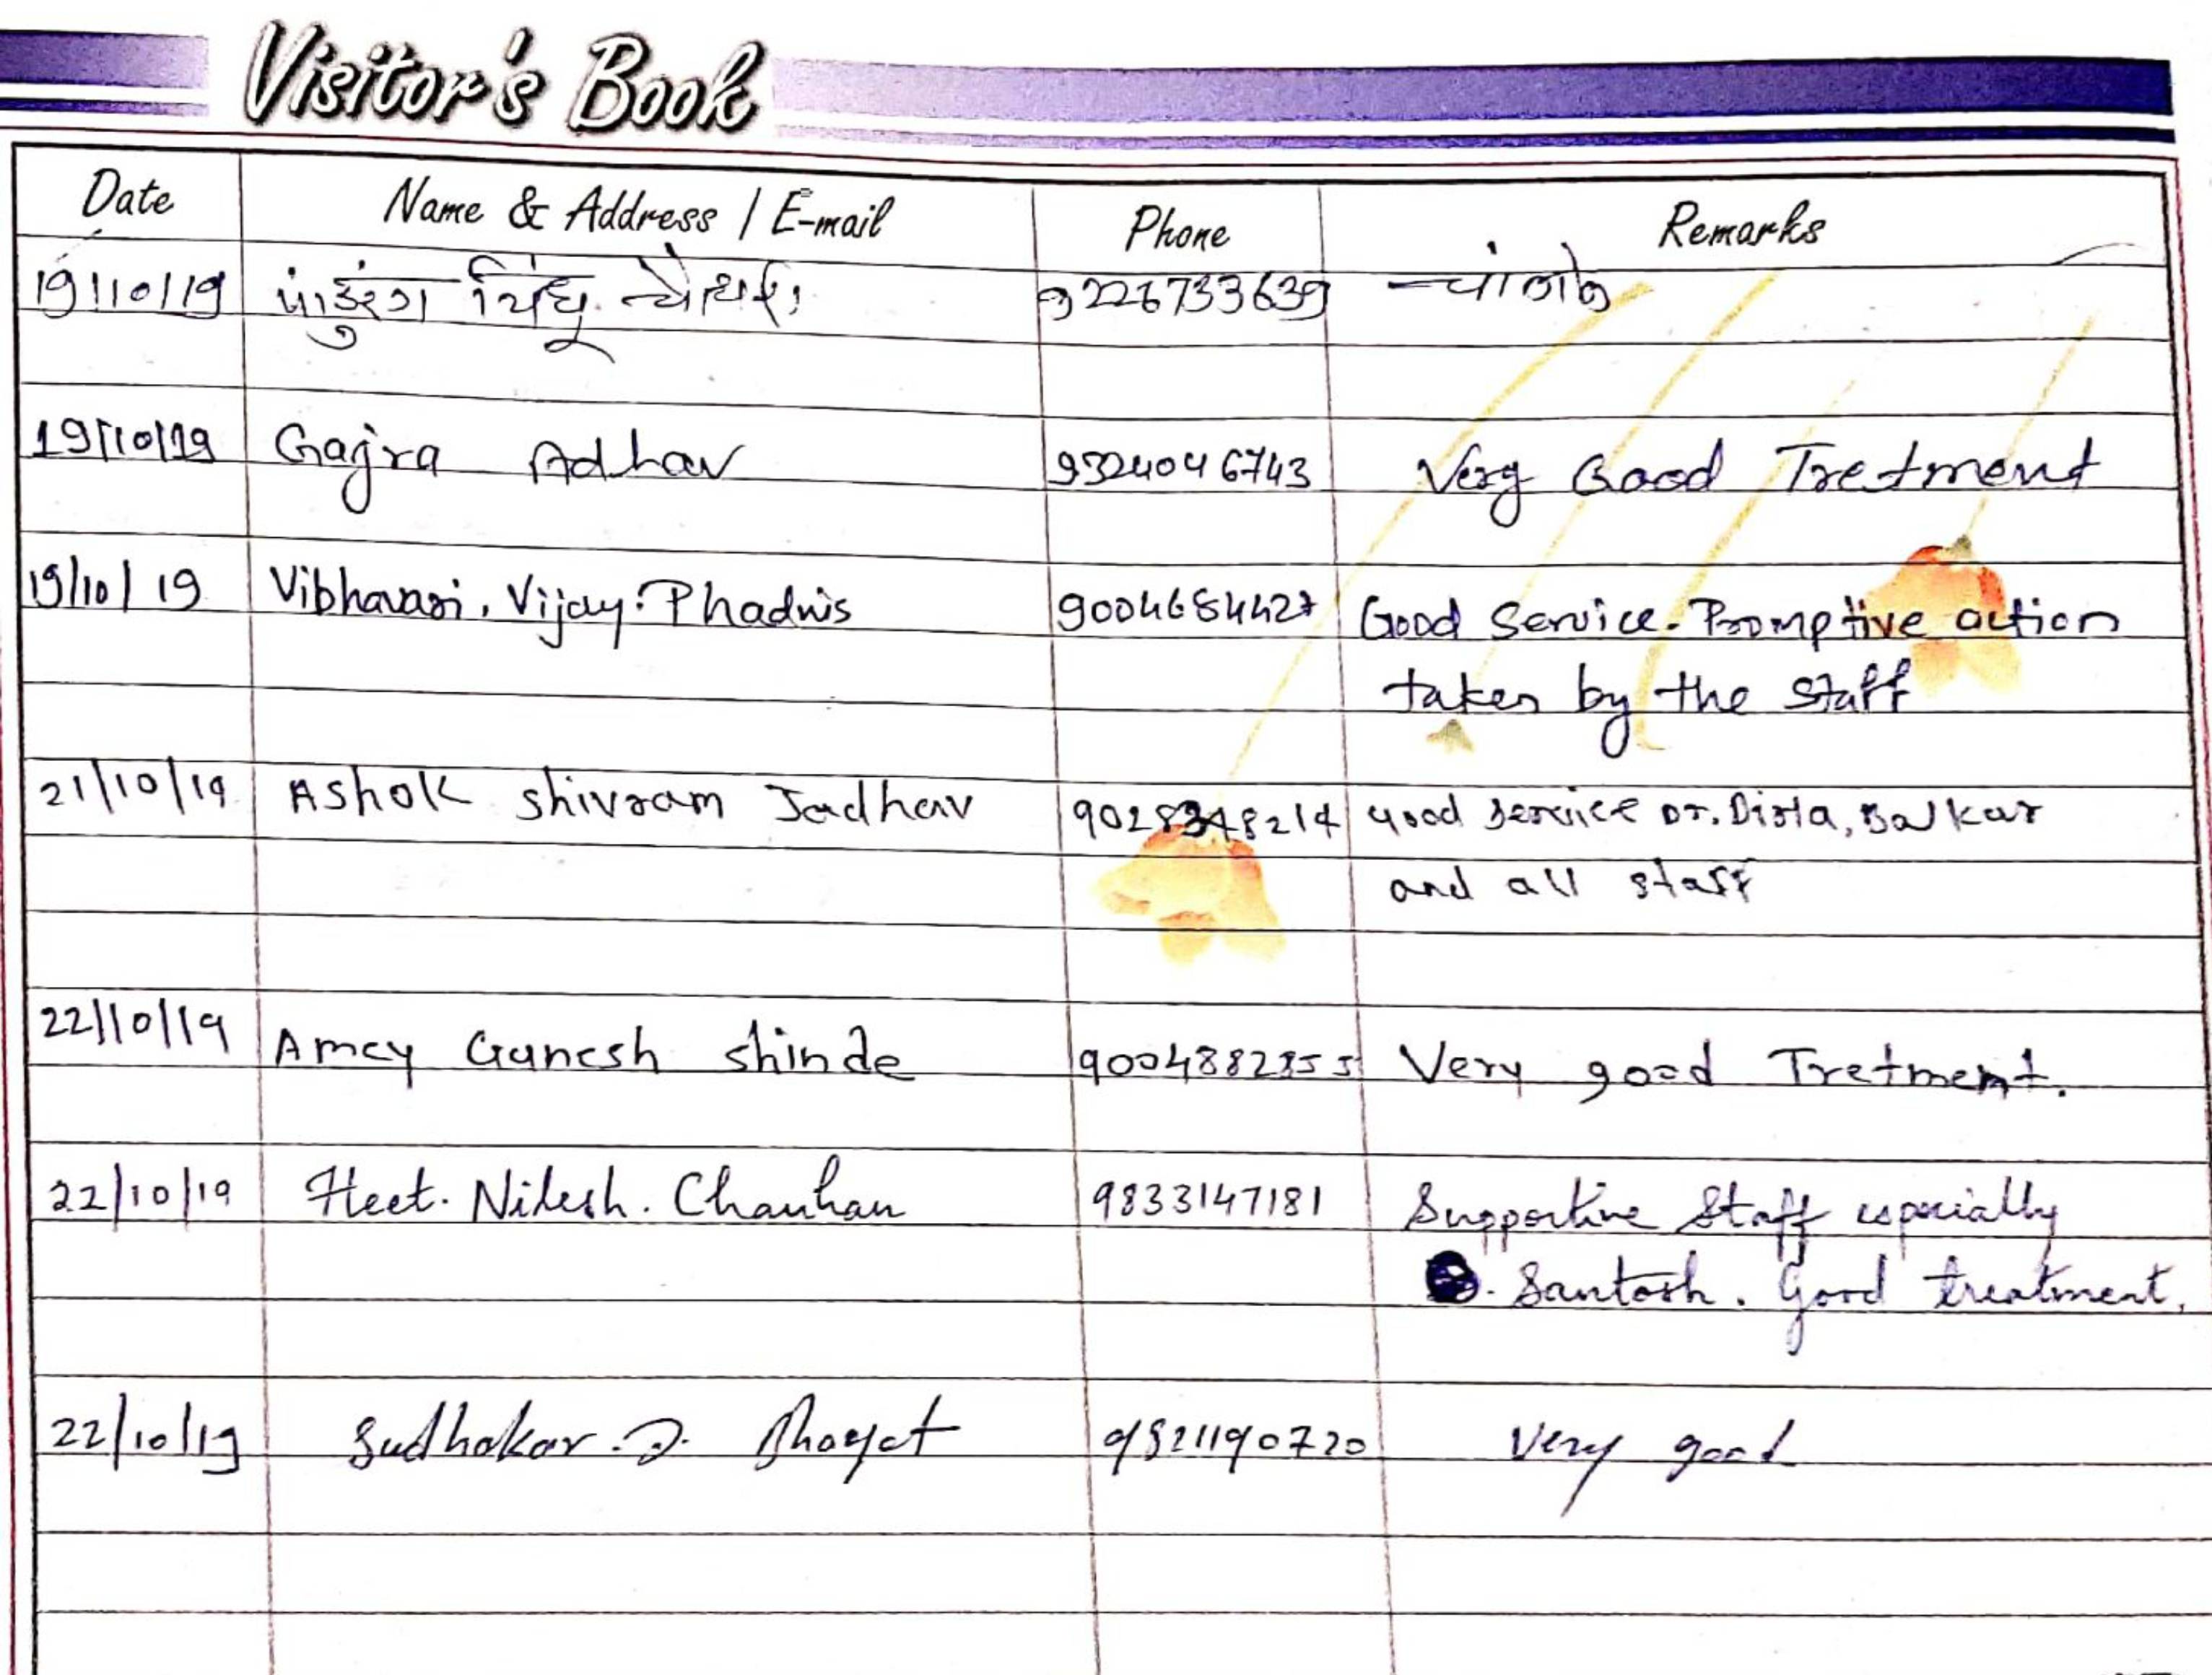 Visitor's Book
Date Name & Address / E-mail Phone Remarks
19/10/19 पांडुरंग चौधरी 9226733639 चांगले
19/10/19 Gajra Adhav 9324046743 Very Good Tretment
19/10/19 Vibhavari. Vijay. Phadnis 9004684427 Good Service. Promptive action
taken by the staff
21/10/19 Ashok shivram Jadhav 9028348214 Good service Dr. and all staff
22/10/19 Amey Ganesh shinde Very good Tretment.
22/10/19 Heet. Nilesh. Chauhan 9833147181 Supportive Staff especially
Santosh. Good treatment.
22/10/19 Sudhakar. D. Bhagat 9821190720 Very good